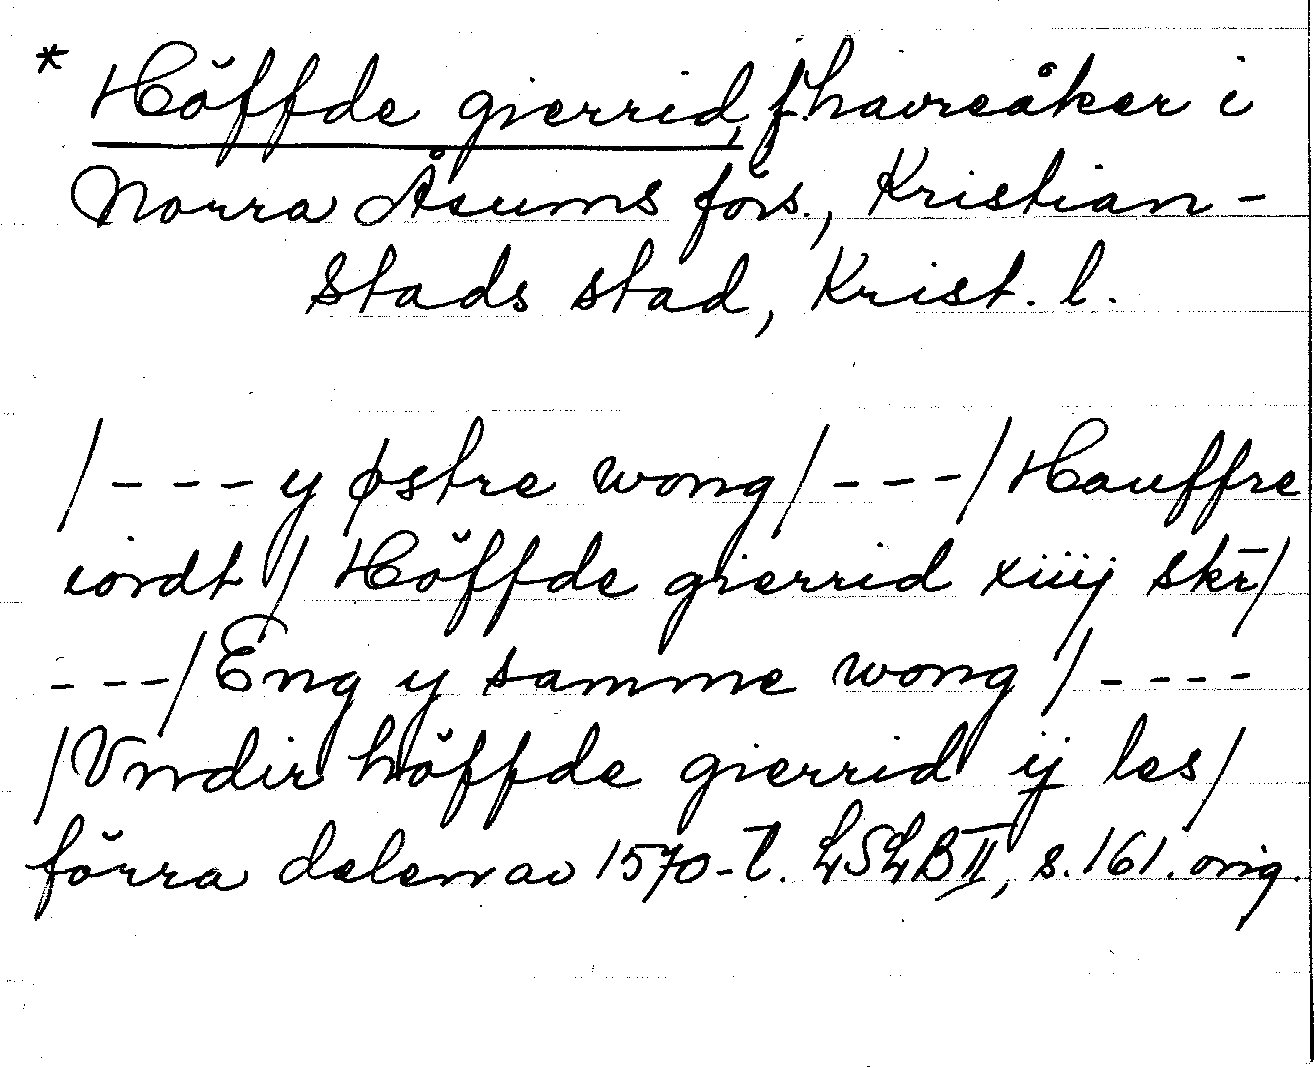 * Höffde gierrid, f. havreåker i
Norra Åsums förs., Kristian-
stads stad, Krist. l.
/---y østre wong/---/Hauffre
iordt/ Höffde gierrid xiiij skr̄/
---/Eng y samme wong/----
/Vndir höffde gierrid ij les/
förra delen av 1570-t. LSLB II, s. 161. orig.